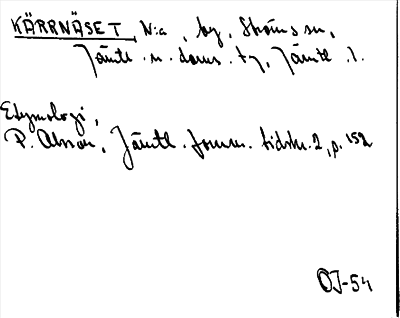 KÄRRNÄSET, N:a, by, Ströms sn,
Jämtl. n. doms. tg, Jämtl. l.
Etymologi,
P. Olsson, Jämtl. fornm. tidskr. 2, p. 152
OJ-54